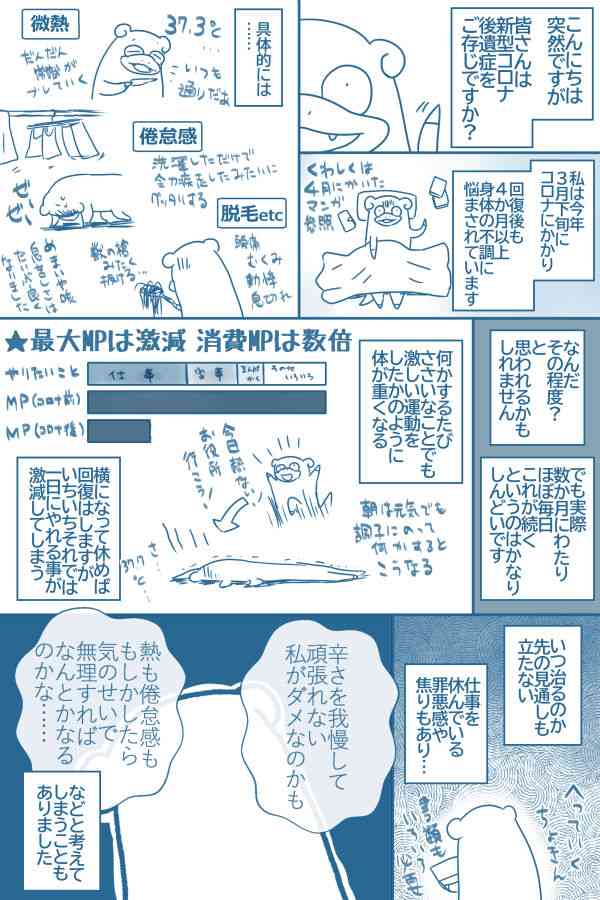 こんにちは
突然ですが
皆さんは
新型コロナ
後遺症を
ご存じですか？
私は今年
3月下旬に
コロナにかかり
回復後も
4か月以上
身体の不調に
悩まされています
くわしくは
4月にかいた
マンガ
参照
具体的には
……
微熱
37.3℃…
いつも
通りだよ
だんだん
常識が
ブレていく
倦怠感
洗濯しただけで
全力疾走したみたいに
グッタリする
ぜぃ、
ぜぃ、
脱毛etc
頭痛
むくみ
動悸
息切れ
獣の様
みたく
抜ける…
めまいや咳
息苦しさは
だいぶ良く
なりました
なんだ
その程度？
と
思われるかも
しれません
でも実際
数か月にわたり
ほぼ毎日
これが続く
というのはかなり
しんどいです
何かするたび
ささいなことでも
激しい運動を
したかのように
体が重くなる
★最大MPは激減 消費MPは数倍
やりたいこと
仕事
家事
まんが
かく
その他
いろいろ
MP(コロナ前)
MP(コロナ後)
今日熱ない！
お役所
行こう！
朝は元気でも
調子にのって
何かすると
こうなる
37.7さ…
℃…
横になって休めば
回復はしますが
いちいちそれでは
一日にやれる事が
激減してしまう
いつ治るのか
先の見通しも
立たない
仕事を
休んでいる
罪悪感や
焦りもあり…
へっていく
ちょきん
書類も
いろいろ
必要
辛さを我慢して
頑張れない
私がダメなのかも
熱も倦怠感も
もしかしたら
気のせいで
無理すれば
なんとかなる
のかな……
などと考えて
しまうことも
ありました